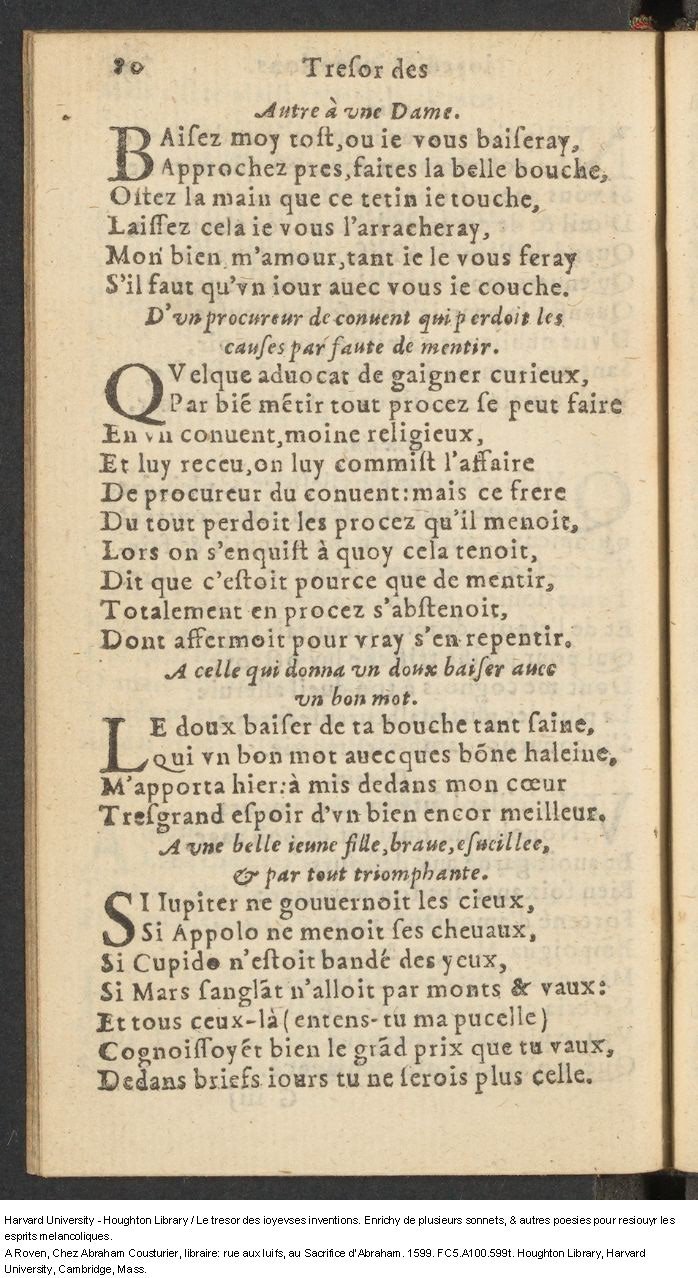 80 Treſor des
Autre à vne Dame.
BAiſez moy toſt, ou ie vous baiſeray,
Approchez pres, faites la belle bouche,
Oſtez la main que ce tetin ie touche,
Laiſſez cela ie vous l'arracheray,
Mon bien m'amour, tant ie le vous feray
S'il faut qu'vn iour auec vous ie couche.
D'vn procureur de conuent qui perdoit les
cauſes par faute de mentir.
QVelque aduocat de gaigner curieux,
Par biẽ mẽtir tout procez ſe peut faire
En vn conuent, moine religieux,
Et luy receu, on luy commiſt l'affaire
De procureur du conuent: mais ce frere
Du tout perdoit les procez qu'il menoit,
Lors on s'enquiſt à quoy cela tenoit,
Dit que c'eſtoit pource que de mentir,
Totalement en procez s'abſtenoit,
Dont affermoit pour vray s'en repentir.
A celle qui donna vn doux baiſer auec
vn bon mot.
LE doux baiſer de ta bouche tant ſaine,
Qui vn bon mot auecques bõne haleine,
M'apporta hier: à mis dedans mon cœur
Treſgrand eſpoir d'vn bien encor meilleur.
A vne belle ieune fille, braue, eſueillee,
& par tout triomphante.
SI Iupiter ne gouuernoit les cieux,
Si Appolo ne menoit ſes cheuaux,
Si Cupido n'eſtoit bandé des yeux,
Si Mars ſanglãt n'alloit par monts & vaux:
Et tous ceux-là (entens-tu ma pucelle)
Cognoiſſoyẽt bien le grãd prix que tu vaux,
Dedans briefs iours tu ne ſerois plus celle.
Harvard University - Houghton Library / Le tresor des ioyevses inventions. Enrichy de plusieurs sonnets, & autres poesies pour resiouyr les
esprits melancoliques.
A Roven, Chez Abraham Cousturier, libraire: rue aux Iuifs, au Sacrifice d'Abraham. 1599. FC5.A100.599t. Houghton Library, Harvard
University, Cambridge, Mass.